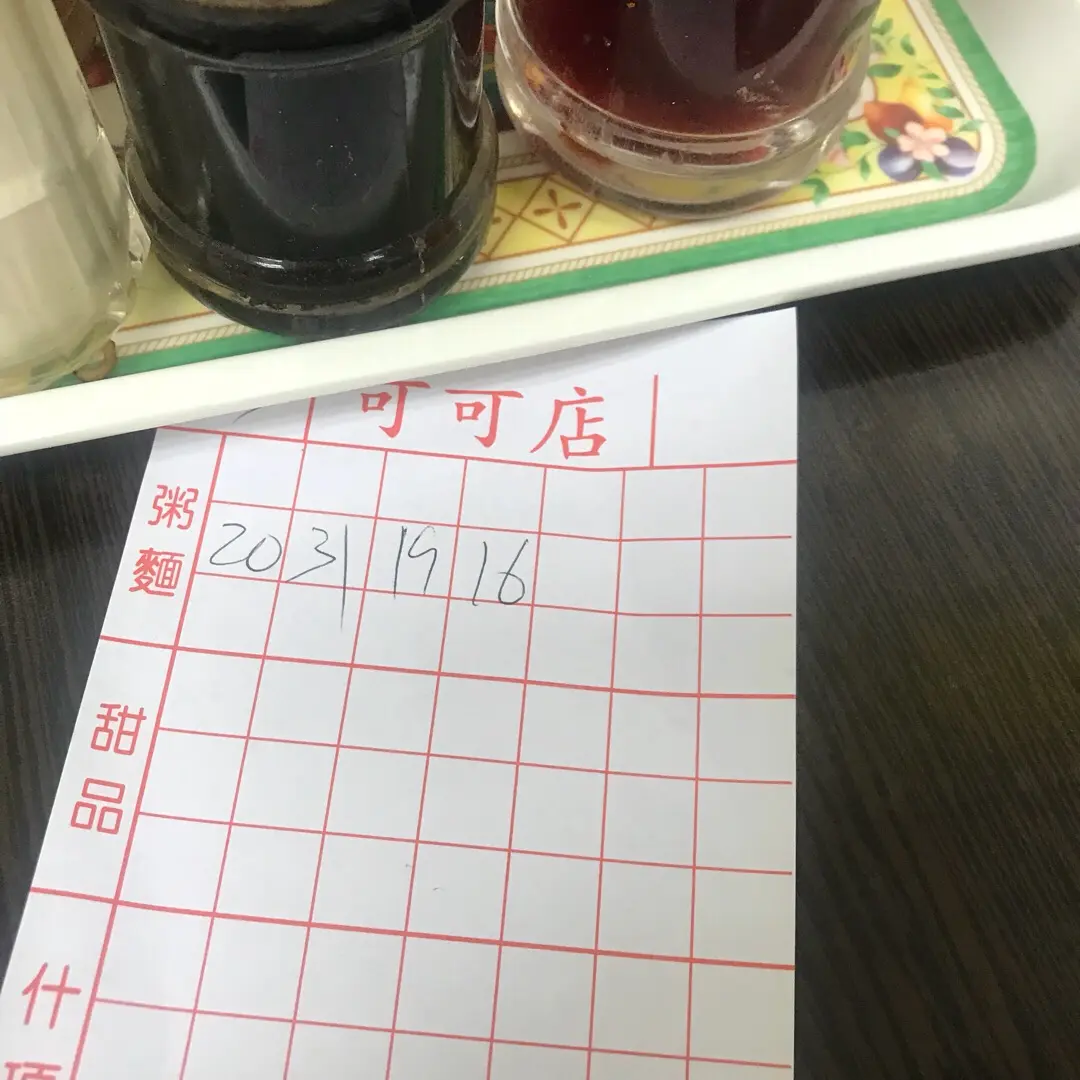 可可店
粥麵
20 31 19 16
甜品
什項